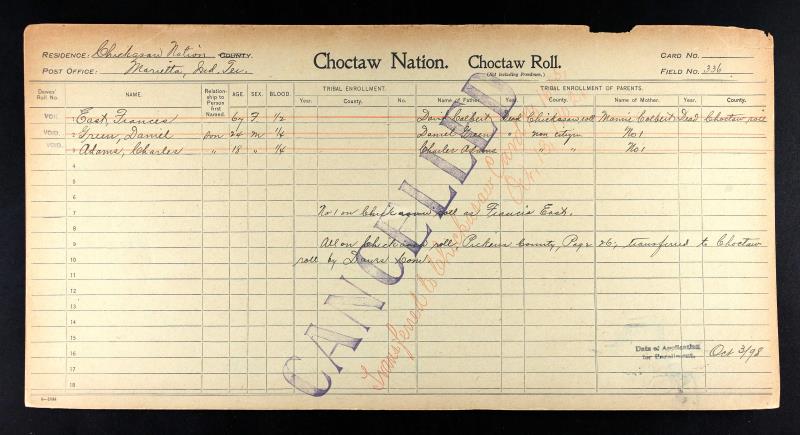 RESIDENCE: Chickasaw Nation COUNTY.
POST OFFICE: Marietta, Ind. Ter.
Choctaw Nation. Choctaw Roll.
(Not Including Freedmen.)
CARD NO.
FIELD NO. 336
Dawes' Roll No. NAME. Relationship to Person first Named. AGE. SEX. BLOOD. TRIBAL ENROLLMENT. TRIBAL ENROLLMENT OF PARENTS.
Year. County. No. Name of Father. Year. County. Name of Mother. Year. County.
VOID. 1 East, Frances 67 F. 1/2 David Colbert Dead Chickasaw roll Mannie Colbert Dead Choctaw roll
VOID. 2 Green, Daniel son 24 M 1/4 Daniel Green " non citizen No1
VOID. Adams, Charles " 18 " 1/4 Charles Adams " " No1
4
5
6
7 No1 on Chickasaw roll as Francis East.
8
9 All on Chickasaw roll, Pickens County, Page 26; transferred to Choctaw
10 roll by Dawes Com.
11
12
13
14
15
16 Date of Application for Enrollment. Oct 3/98
17
18
CANCELLED
Transferred to Chickasaw Card